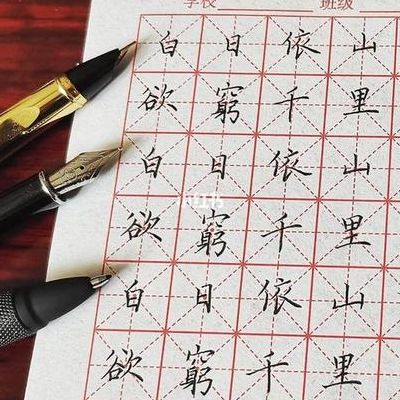 学校 班级
白日依山
欲窮千里
白日依山
欲窮千里
白日依山
欲窮千里